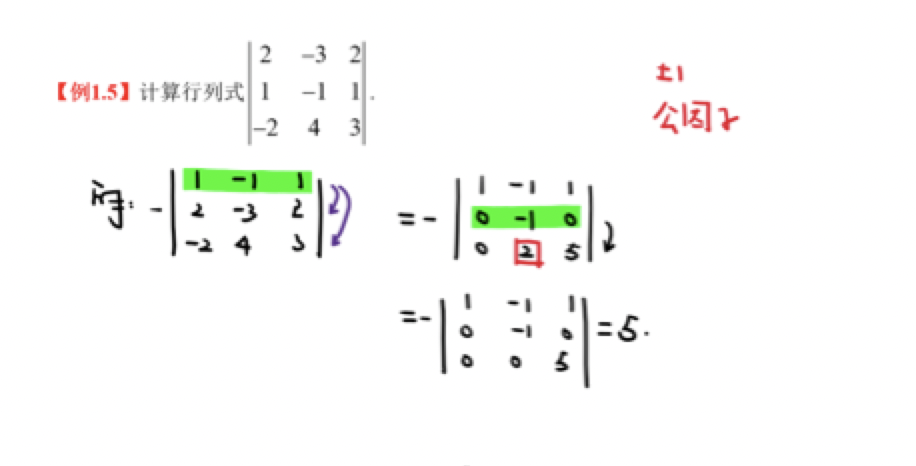 【例1.5】计算行列式
|2 -3 2|
|1 -1 1|.
|-2 4 3|
±1
公因子
解: -
|1 -1 1|
|2 -3 2|
|-2 4 3|
= -
|1 -1 1|
|0 -1 0|
|0 2 5|
= -
|1 -1 1|
|0 -1 0|
|0 0 5|
= 5.